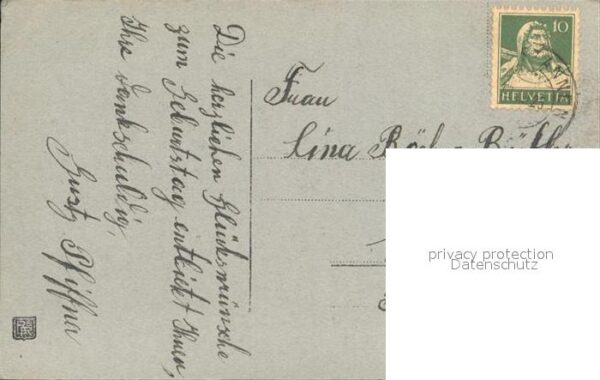 Die herzlichen Glückwünsche
zum Geburtstag entbietet Ihnen,
Ihre dankschuldig,
Pfiffner
Frau
Lina
10
HELVETIA
privacy protection
Datenschutz